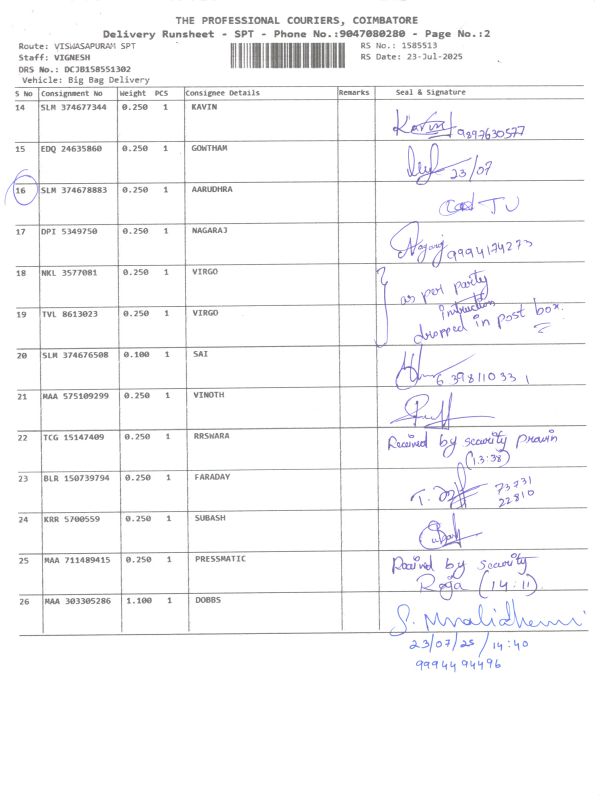 THE PROFESSIONAL COURIERS, COIMBATORE
Delivery Runsheet - SPT - Phone No.:9047080280 - Page No.:2
Route: VISWASAPURAM SPT RS No.: 1585513
Staff: VIGNESH RS Date: 23-Jul-2025
DRS No.: DCJB158551302
Vehicle: Big Bag Delivery
S No Consignment No Weight PCS Consignee Details Remarks Seal & Signature
14 SLM 374677344 0.250 1 KAVIN Kavin 9897630577
15 EDQ 24635860 0.250 1 GOWTHAM 23/07
16 SLM 374678883 0.250 1 AARUDHRA
17 DPI 5349750 0.250 1 NAGARAJ Nagaraj 9994174273
18 NKL 3577081 0.250 1 VIRGO as per party
Instruction
19 TVL 8613023 0.250 1 VIRGO dropped in post box.
20 SLM 374676508 0.100 1 SAI 6398110331
21 MAA 575109299 0.250 1 VINOTH
22 TCG 15147409 0.250 1 RRSWARA Received by security Pravin
(13:38)
23 BLR 150739794 0.250 1 FARADAY 73731
22810
24 KRR 5700559 0.250 1 SUBASH
25 MAA 711489415 0.250 1 PRESSMATIC Received by security
Roja (14:11)
26 MAA 303305286 1.100 1 DOBBS
23/07/25/14:40
9994494496